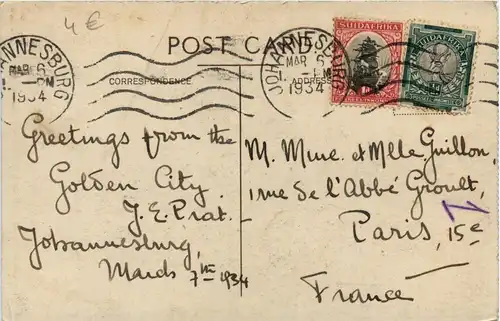 4 €
POST CARD
JOHANNESBURG
MAR 6
PM
1934
JOHANNESBURG
MAR 6
1934
SUIDAFRIKA
SUIDAFRIKA
CORRESPONDENCE
ADDRESS
Greetings from the
Golden City
J. E. Prat.
Johannesburg,
March 7th 1934
M. Mme. et Mlle Guillon,
1 rue de l'Abbé Groult,
Paris, 15e
France